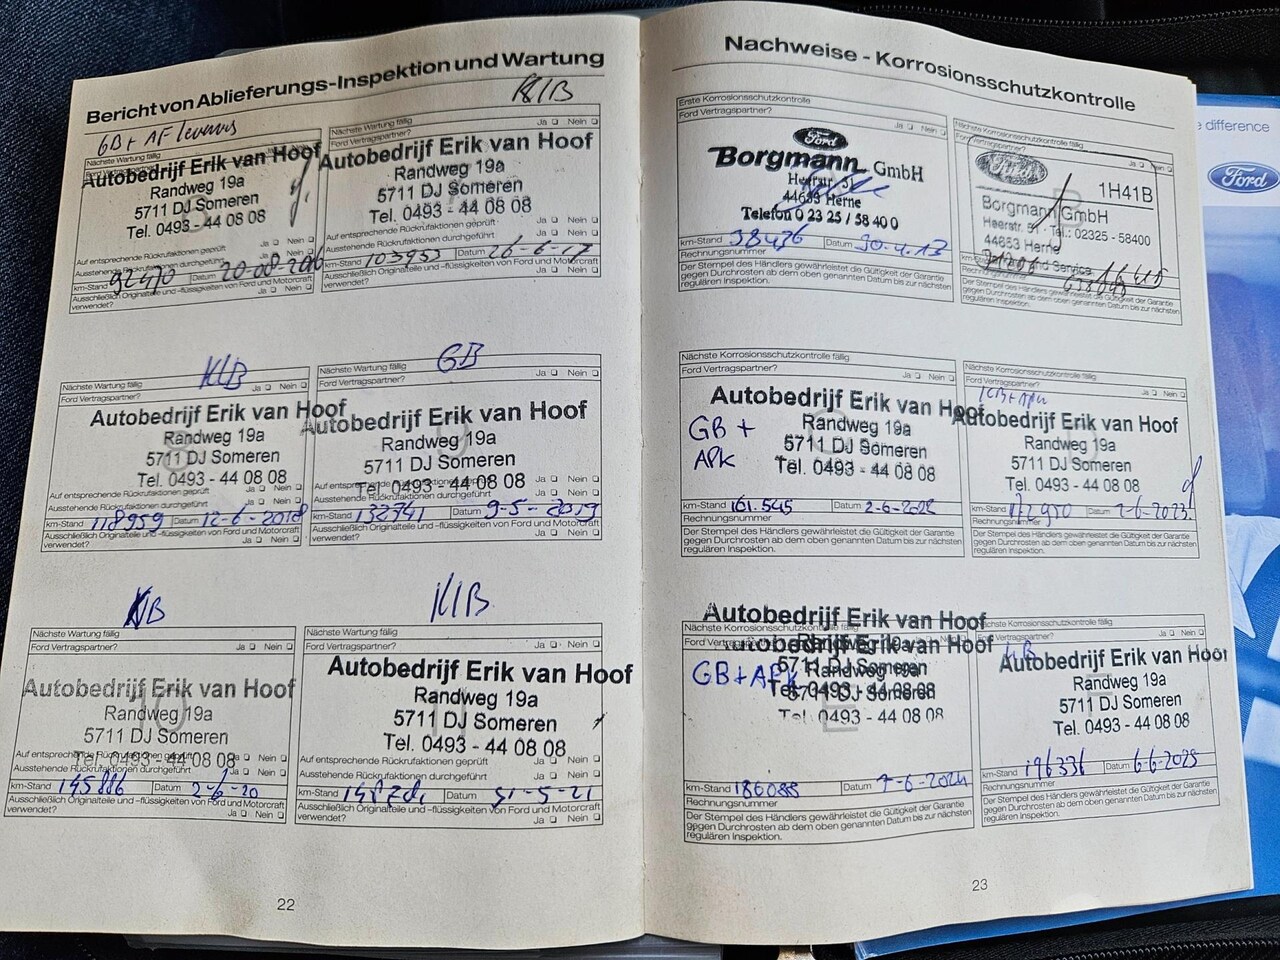 Bericht von Ablieferungs-Inspektion und Wartung
GB + AF
Nächste Wartung fällig
Autobedrijf Erik van Hoof
Randweg 19a
5711 DJ Someren
Tel. 0493 - 44 08 08
Auf entsprechende Rückrufaktionen geprüft Ja Nein
Ausstehende Rückrufaktionen durchgeführt Ja Nein
km-Stand 92470 Datum 20-08-2016
Ausschließlich Originalteile und -flüssigkeiten von Ford und Motorcraft
verwendet? Ja Nein
KlB
Nächste Wartung fällig
Ford Vertragspartner? Ja Nein
Autobedrijf Erik van Hoof
Randweg 19a
5711 DJ Someren
Tel. 0493 - 44 08 08
Auf entsprechende Rückrufaktionen geprüft Ja Nein
Ausstehende Rückrufaktionen durchgeführt Ja Nein
km-Stand 103953 Datum 26-6-17
Ausschließlich Originalteile und -flüssigkeiten von Ford und Motorcraft
verwendet? Ja Nein
KLB
Nächste Wartung fällig
Ford Vertragspartner? Ja Nein
Autobedrijf Erik van Hoof
Randweg 19a
5711 DJ Someren
Tel. 0493 - 44 08 08
Auf entsprechende Rückrufaktionen geprüft Ja Nein
Ausstehende Rückrufaktionen durchgeführt Ja Nein
km-Stand 118959 Datum 12-6-2018
Ausschließlich Originalteile und -flüssigkeiten von Ford und Motorcraft
verwendet? Ja Nein
GB
Nächste Wartung fällig
Ford Vertragspartner? Ja Nein
Autobedrijf Erik van Hoof
Randweg 19a
5711 DJ Someren
Tel. 0493 - 44 08 08
Auf entsprechende Rückrufaktionen geprüft Ja Nein
Ausstehende Rückrufaktionen durchgeführt Ja Nein
km-Stand 132741 Datum 9-5-2019
Ausschließlich Originalteile und -flüssigkeiten von Ford und Motorcraft
verwendet? Ja Nein
KB
Nächste Wartung fällig
Ford Vertragspartner? Ja Nein
Autobedrijf Erik van Hoof
Randweg 19a
5711 DJ Someren
Tel. 0493 - 44 08 08
10
Auf entsprechende Rückrufaktionen geprüft Ja Nein
Ausstehende Rückrufaktionen durchgeführt Ja Nein
km-Stand 145886 Datum 2-6-20
Ausschließlich Originalteile und -flüssigkeiten von Ford und Motorcraft
verwendet? Ja Nein
KlB
Nächste Wartung fällig
Ford Vertragspartner? Ja Nein
Autobedrijf Erik van Hoof
Randweg 19a
5711 DJ Someren
Tel. 0493 - 44 08 08
11
Auf entsprechende Rückrufaktionen geprüft Ja Nein
Ausstehende Rückrufaktionen durchgeführt Ja Nein
km-Stand Datum 31-5-21
Ausschließlich Originalteile und -flüssigkeiten von Ford und Motorcraft
verwendet? Ja Nein
22
Nachweise - Korrosionsschutzkontrolle
Erste Korrosionsschutzkontrolle
Ford Vertragspartner? Ja Nein
Ford
Borgmann GmbH
Heerstr. 51
44653 Herne
Telefon 0 23 25 / 58 40 0
km-Stand 38436 Datum 30.4.13
Rechnungsnummer
Der Stempel des Händlers gewährleistet die Gültigkeit der Garantie
gegen Durchrosten ab dem oben genannten Datum bis zur nächsten
regulären Inspektion.
Nächste Korrosionsschutzkontrolle fällig
Ford Vertragspartner? Ja Nein
Ford
1H41B
Borgmann GmbH
Heerstr. 51 · Tel.: 02325 - 58400
44653 Herne
km-Stand
Rechnungsnummer
Der Stempel des Händlers gewährleistet die Gültigkeit der Garantie
gegen Durchrosten ab dem oben genannten Datum bis zur nächsten
regulären Inspektion.
Nächste Korrosionsschutzkontrolle fällig
Ford Vertragspartner? Ja Nein
GB +
APK
Autobedrijf Erik van Hoof
Randweg 19a
5711 DJ Someren
Tel. 0493 - 44 08 08
km-Stand 161.545 Datum 2-6-2022
Rechnungsnummer
Der Stempel des Händlers gewährleistet die Gültigkeit der Garantie
gegen Durchrosten ab dem oben genannten Datum bis zur nächsten
regulären Inspektion.
Nächste Korrosionsschutzkontrolle fällig
Ford Vertragspartner? Ja Nein
KB + APK
Autobedrijf Erik van Hoof
Randweg 19a
5711 DJ Someren
Tel. 0493 - 44 08 08
km-Stand 172950 Datum 2-6-2023
Rechnungsnummer
Der Stempel des Händlers gewährleistet die Gültigkeit der Garantie
gegen Durchrosten ab dem oben genannten Datum bis zur nächsten
regulären Inspektion.
Autobedrijf Erik van Hoof
Nächste Korrosionsschutzkontrolle fällig
Ford Vertragspartner?
Autobedrijf Erik van Hoof
Randweg 19a
GB + APK
5711 DJ Someren
Tel. 0493 - 44 08 08
E
km-Stand 186088 Datum 7-6-2024
Rechnungsnummer
Der Stempel des Händlers gewährleistet die Gültigkeit der Garantie
gegen Durchrosten ab dem oben genannten Datum bis zur nächsten
regulären Inspektion.
Ja Nein
Autobedrijf Erik van Hoof
Randweg 19a
5711 DJ Someren
Tel. 0493 - 44 08 08
km-Stand 196336 Datum 6-6-2025
Rechnungsnummer
Der Stempel des Händlers gewährleistet die Gültigkeit der Garantie
gegen Durchrosten ab dem oben genannten Datum bis zur nächsten
regulären Inspektion.
23
e difference
Ford